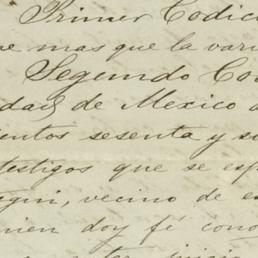 Primer Codic
e mas que la vari
Segundo Co
dad de Mexico a
ientos sesenta y s
testigos que se esp
egui, vecino de es
uien doy fé cono